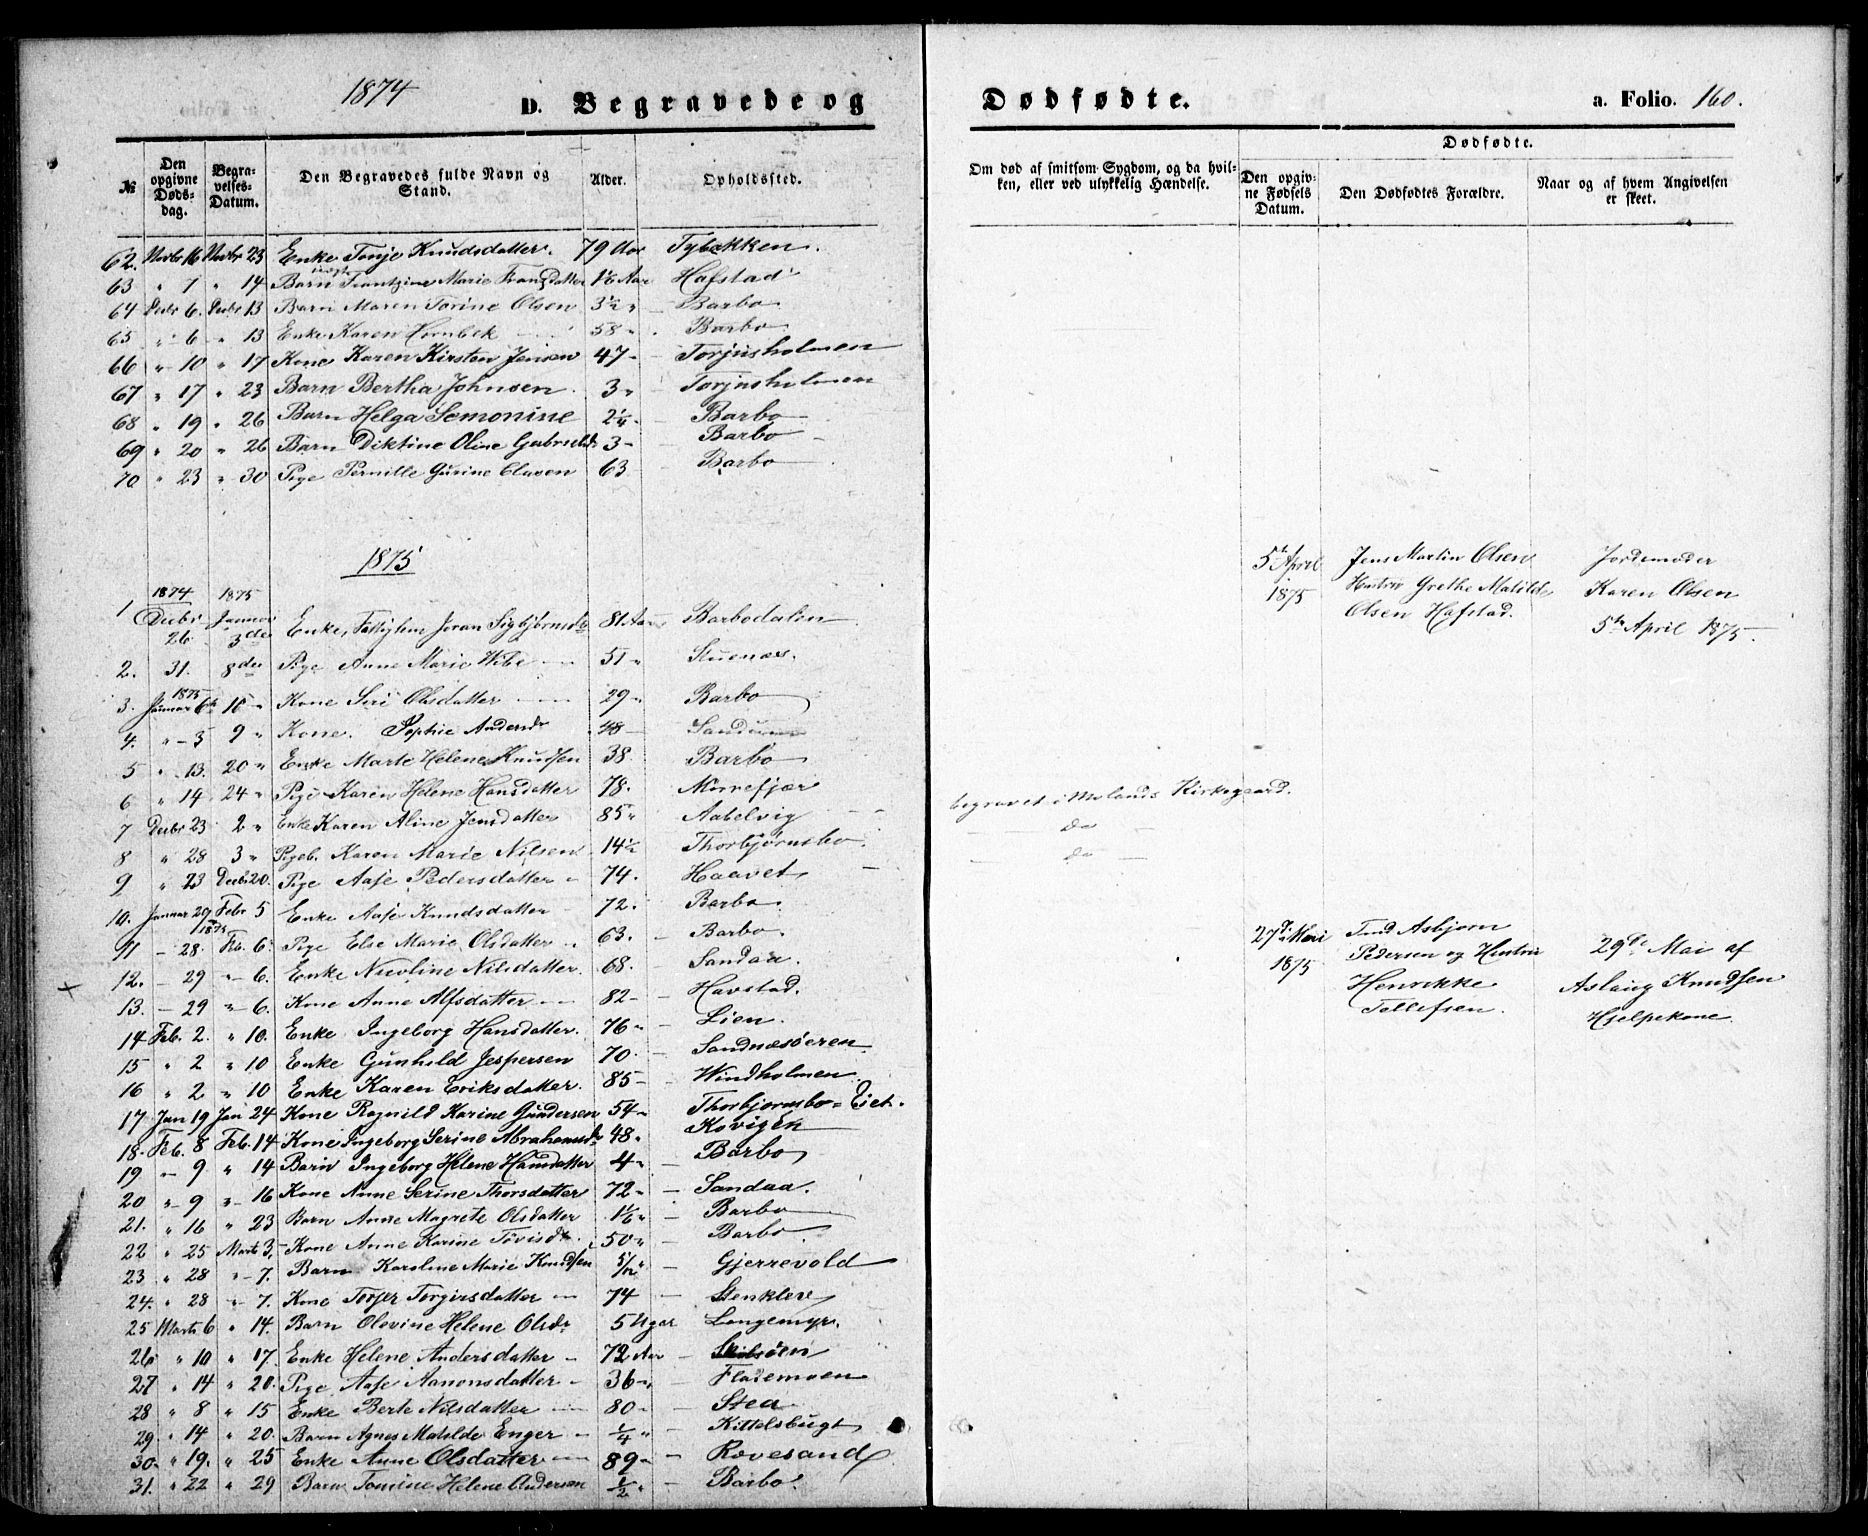 1874
D. Begravede og Dødfødte.
a. Folio. 160.
№
Den opgivne Døds-dag.
Begra-velses-Datum.
Den Begravedes fulde Navn og Stand.
Alder.
Opholdssted.
Om død af smitsom Sygdom, og da hvil-ken, eller ved ulykkelig Hændelse.
Dødfødte.
Den opgiv-ne Fødsels Datum.
Den Dødfødtes Forældre.
Naar og af hvem Angivelsen er skeet.
62. Novbr 16 Novbr 23 Enke Tonje Knudsdatter. 79 Aar Tybækken.
63 " 1 " 14 Barn Frantzine Marie Fransdatter 1 1/6 Aar Hafstad
64 Decbr 6. Decbr 13 Barn Maren Torine Olsen 3 1/2 " Barbo
65 " 6 " 13 Enke Karen Hornbek 58 " Barbo
66 " 10 " 17 Kone Karen Kirsten Jensen 47 - Torjusholmen
67 " 17 " 23 Barn Bertha Johnsen 3 " Torjusholmen
68 " 19 " 26 Barn Helga Semonine 2 1/4 - Barbo
69 " 20 " 26 Barn Diktine Oline 3 - Barbo
70 " 23 " 30 Pige Pernille Gurine Clasen 63 Barbo
1875
1874 1875
1 Decbr 26 Januar 3die Enke, Fattiglem Joran 81 Aar Barbodalen
2. 31. 8de Pige Anne Marie Wibe 51 " Stuenæs.
1875
3. Januar 6te 10 " Kone Siri Olsdatter 29 " Barbo
4. " - 3 9 " Kone. Sophie Andersd 48 -
5 " 13. 20 " Enke Marte Helene Knudsen 38. Barbo
6 " 14 24 " Pige Karen Helene Hansdatter 78. Morrefjær
7 Decbr 23 2 " Enke Karen Aline Jensdatter 85 " Aabelvig
8 " 28 3 " Pigeb. Karen Marie Nilsen 14 1/2 Thorbjørnsbo.
9 " 23 Decbr 20. Pige Aase Pedersdatter 74. Haavet
10. Januar 29 Febr 5 Enke Aase Knudsdatter 72. Barbo
1875
11 - 28. Fb. 6. Pige Else Marie Olsdatter 63. Barbo
12. - 29 " 6. Enke Nicoline Nilsdatter. 68. Sandaa.
13. - 29 " 6. Kone Anne Alfsdatter 82 - Havstad.
14 Feb. 2. " 10. Enke Ingeborg Hansdatter. 76 " Lien.
15 " 2 " 10 Enke Gunhild Jespersen 70. Sandnæsøeren.
16 " 2 " 10 Enke Karen Eriksdatter. 85 - Windholmen
17 Jan 19 Jan 24 Kone Ragnild Karine Gundersen 54 " Thorbjørnsbo = Eiet.
18. Feb. 8 Feb. 14 Kone Ingeborg Serine Abrahamsd 48 " Kovigen
19 " 9 " 14 Barn Ingeborg Helene Hansdatter 4 " Barbo
20 " 9 " 16 Kone Anne Serine Thorsdatter 72 " Sandaa.
21. " 16 " 23 Barn Anne Magrete Olsdatter 1 1/6 " Barbo
22 " 25 Marts 3. Kone Anne Karine 50 " Barbo.
23 " 28 " 7. Barn Karoline Marie Knudsen 5/12 " Gjerrevold
24. " 28 " 7. Kone Torjer Torgersdatter 74 Stenklev
25 Marts 6 " 14. Barn Olevine Helene Olsd 5 Uger Longemyr.
26 " 10 " 17. Enke Helene Andersdatter 72 Aar
27 " 14 " 20. Pige Aase Aanonsdatter 36 " Flademoen
28 " 8 " 15 Enke Berte Nilsdatter 80 " Stea
29. " 14 " 20. Barn Agnes Matilde Enger 1/4 " Kittelsbugt
30. " 19. " 25 Enke Anne Olsdatter 89 " Rovesand
31. " 22 " 29 Barn Tomine Helene Andersen 1/2 " Barbo.
5te April 1875
Jens Martin Olsen
Hustru Grethe Matilde
Olsen Hafstad.
Jordemoder
Karen Olsen
5te April 1875.
begravet i Molands Kirkegaard.
do
do
27de Mai 1875
Asbjørn
Pedersen og Hustru
Henrikke
Tellefsen.
29de Mai af
Aslaug Knudsen
Hjelpekone.